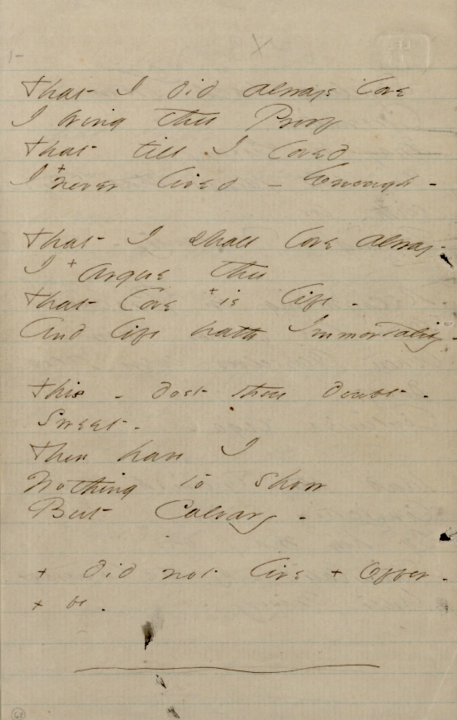 That I did always love
I bring thee Proof
That till I loved
I + never lived - Enough -
That I shall love alway -
I + argue thee
That love + is life -
And life hath Immortality -
This - dost thou doubt -
Sweet -
Then have I
Nothing to show
But Calvary -
+ did not live + Offer -
+ be -